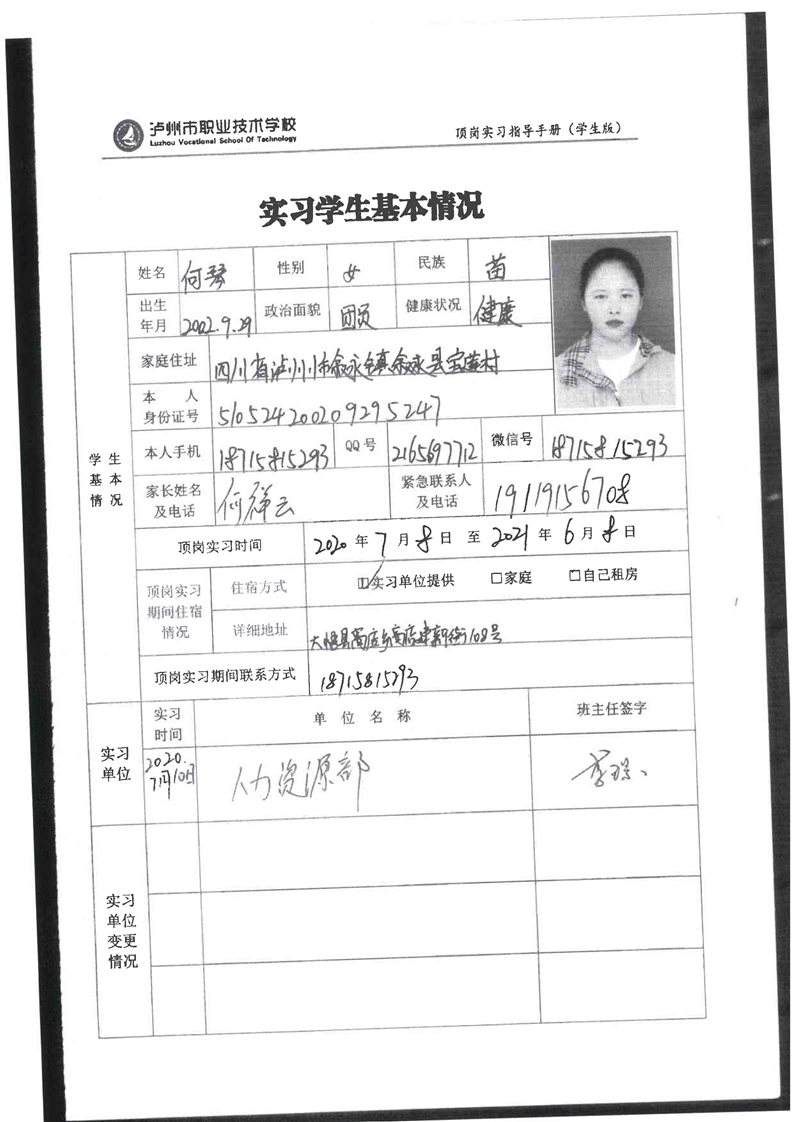 泸州市职业技术学校
Luzhou Vocational School Of Technology
顶岗实习指导手册（学生版）
实习学生基本情况
学生基本情况
姓名 何琴 性别 女 民族 苗
出生年月 2002.9.29 政治面貌 团员 健康状况 健康
家庭住址 四川省泸州市叙永镇叙永县宝莲村
本人身份证号 510524200209295247
本人手机 18715815293 QQ号 2165697712 微信号 18715815293
家长姓名及电话 何祥云 紧急联系人及电话 19119156708
顶岗实习时间 2020年7月8日至2021年6月8日
顶岗实习期间住宿情况 住宿方式 □实习单位提供 □家庭 □自己租房
详细地址 大邑县高店乡高店 新街108号
顶岗实习期间联系方式 18715815293
实习单位 实习时间 单位名称 班主任签字
2020.7月10日 人力资源部 李
实习单位变更情况